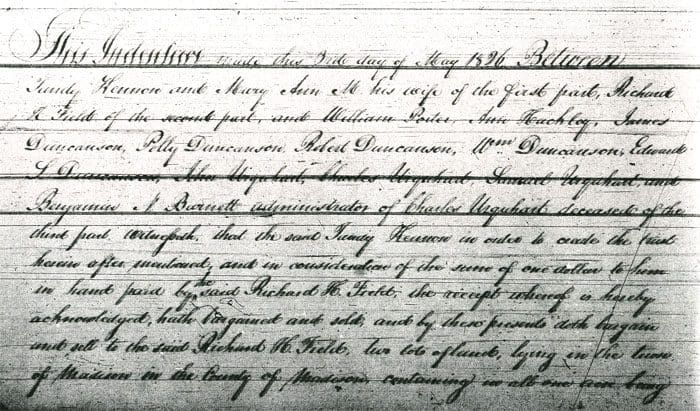 This Indenture made this 3rd day of May 1826 Between
Tandy Kennon and Mary Ann M his wife of the first part, Richard
H Field of the second part, and William Porter, Ann Hackley, James
Duncanson, Polly Duncanson, Robert Duncanson, Wm Duncanson, Edward
S Duncanson, Urquhart, Charles Urquhart, Samuel Urquhart, and
Benjamin N Barnett administrator of Charles Urquhart deceased of the
third part, witnesseth, that the said Tandy Kennon in order to create the trust
herein after mentioned, and in consideration of the sum of one dollar to him
in hand paid by the said Richard H. Field, the receipt whereof is hereby
acknowledged, hath bargained and sold, and by these presents doth bargain
and sell to the said Richard H. Field, two lots of land, lying in the town
of Madison in the County of Madison, containing in all one acre being